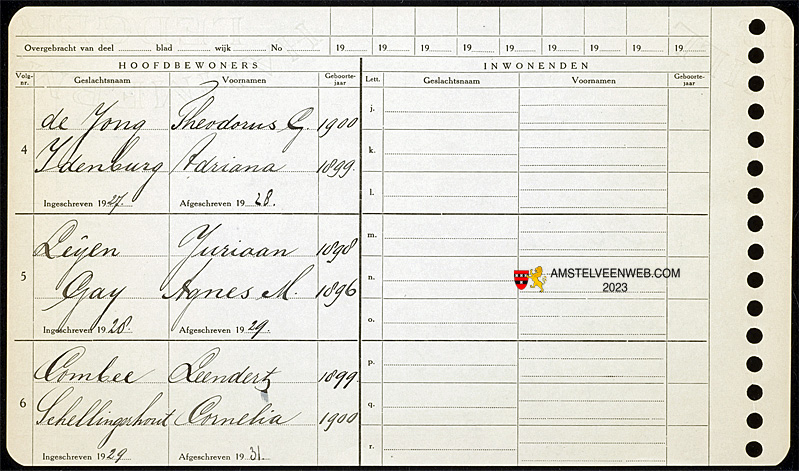 Overgebracht van deel blad wijk No 19 19 19 19 19 19 19 19 19
HOOFDBEWONERS INWONENDEN
Volg-nr. Geslachtsnaam Voornamen Geboorte-jaar Lett. Geslachtsnaam Voornamen Geboorte-jaar
j.
de Jong Theodorus G. 1900
4
k.
Idenburg Adriana 1899
l.
Ingeschreven 1927. Afgeschreven 1928.
m.
Leÿen Juriaan 1898
5
n.
Gay Agnes M. 1896
AMSTELVEENWEB.COM
2023
o.
Ingeschreven 1928. Afgeschreven 1929.
p.
Combee Leendert 1899
6
q.
Schellingerhout Cornelia 1900
r.
Ingeschreven 1929 Afgeschreven 1931.